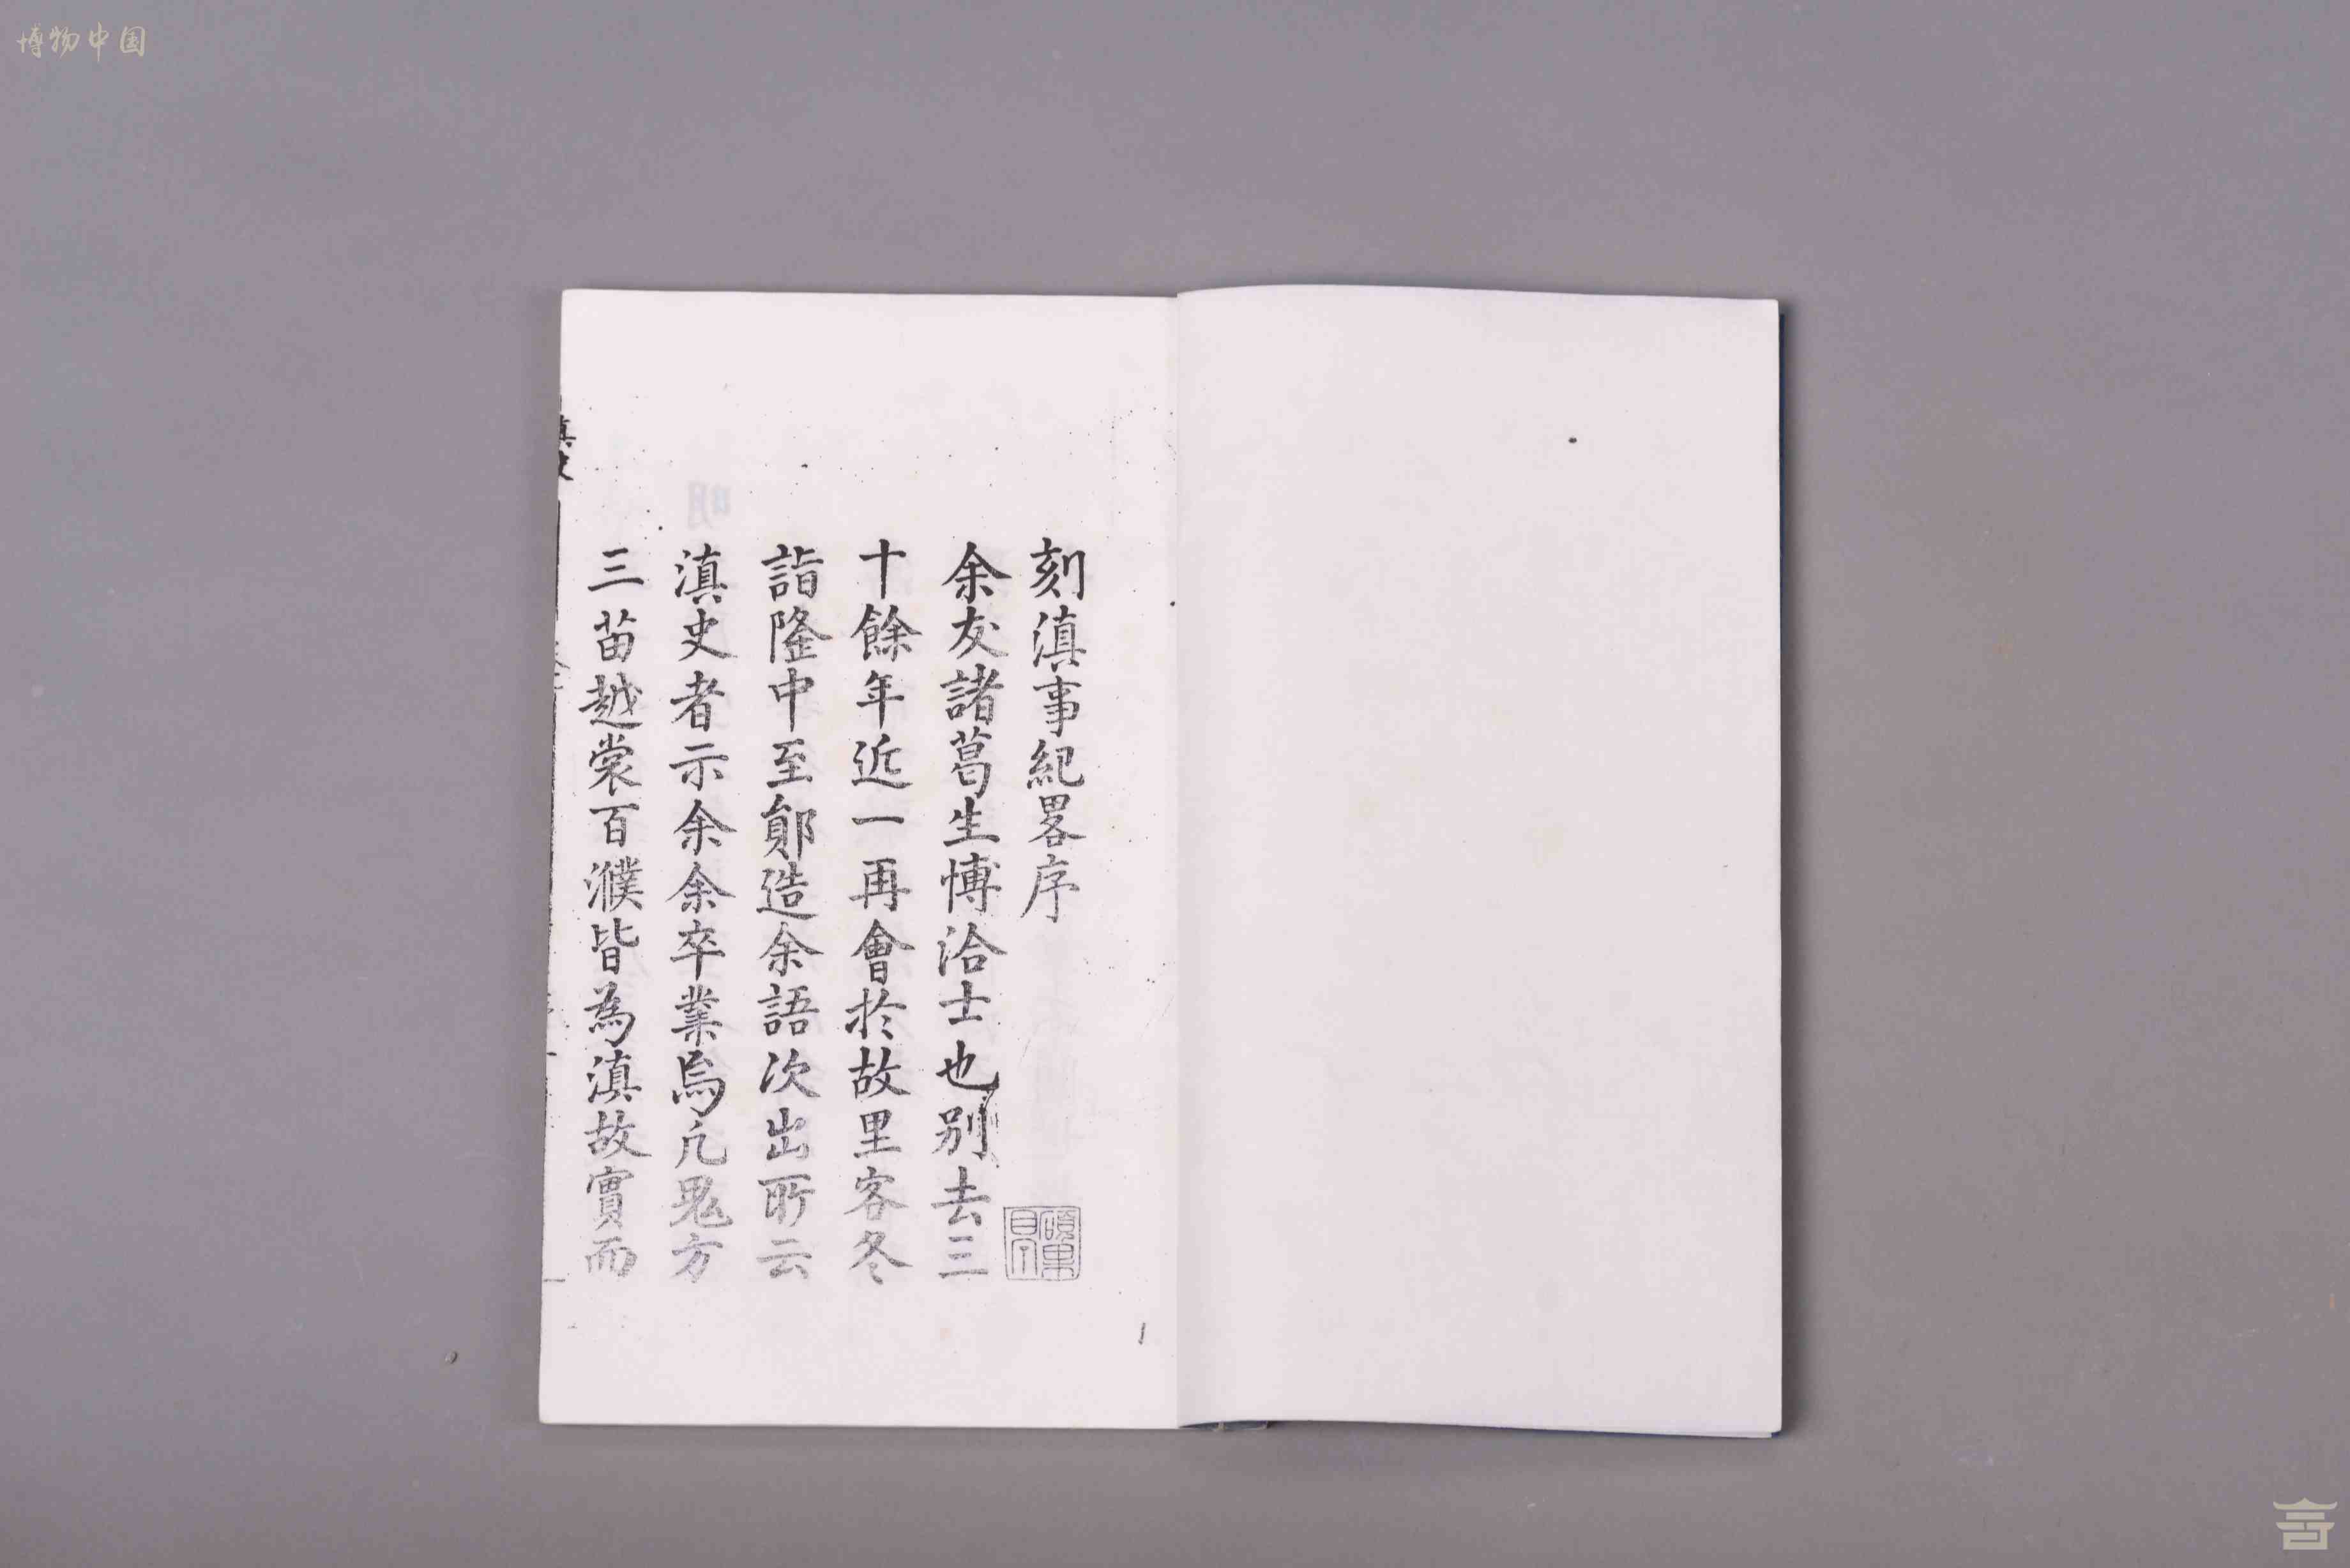 博物中国
刻滇事紀畧序
余友諸葛生博洽士也别去三
十餘年近一再會於故里客冬
詣隆中至鄖造余語次出所云
滇史者示余余卒業焉凡鬼方
三苗越裳百濮皆為滇故實而